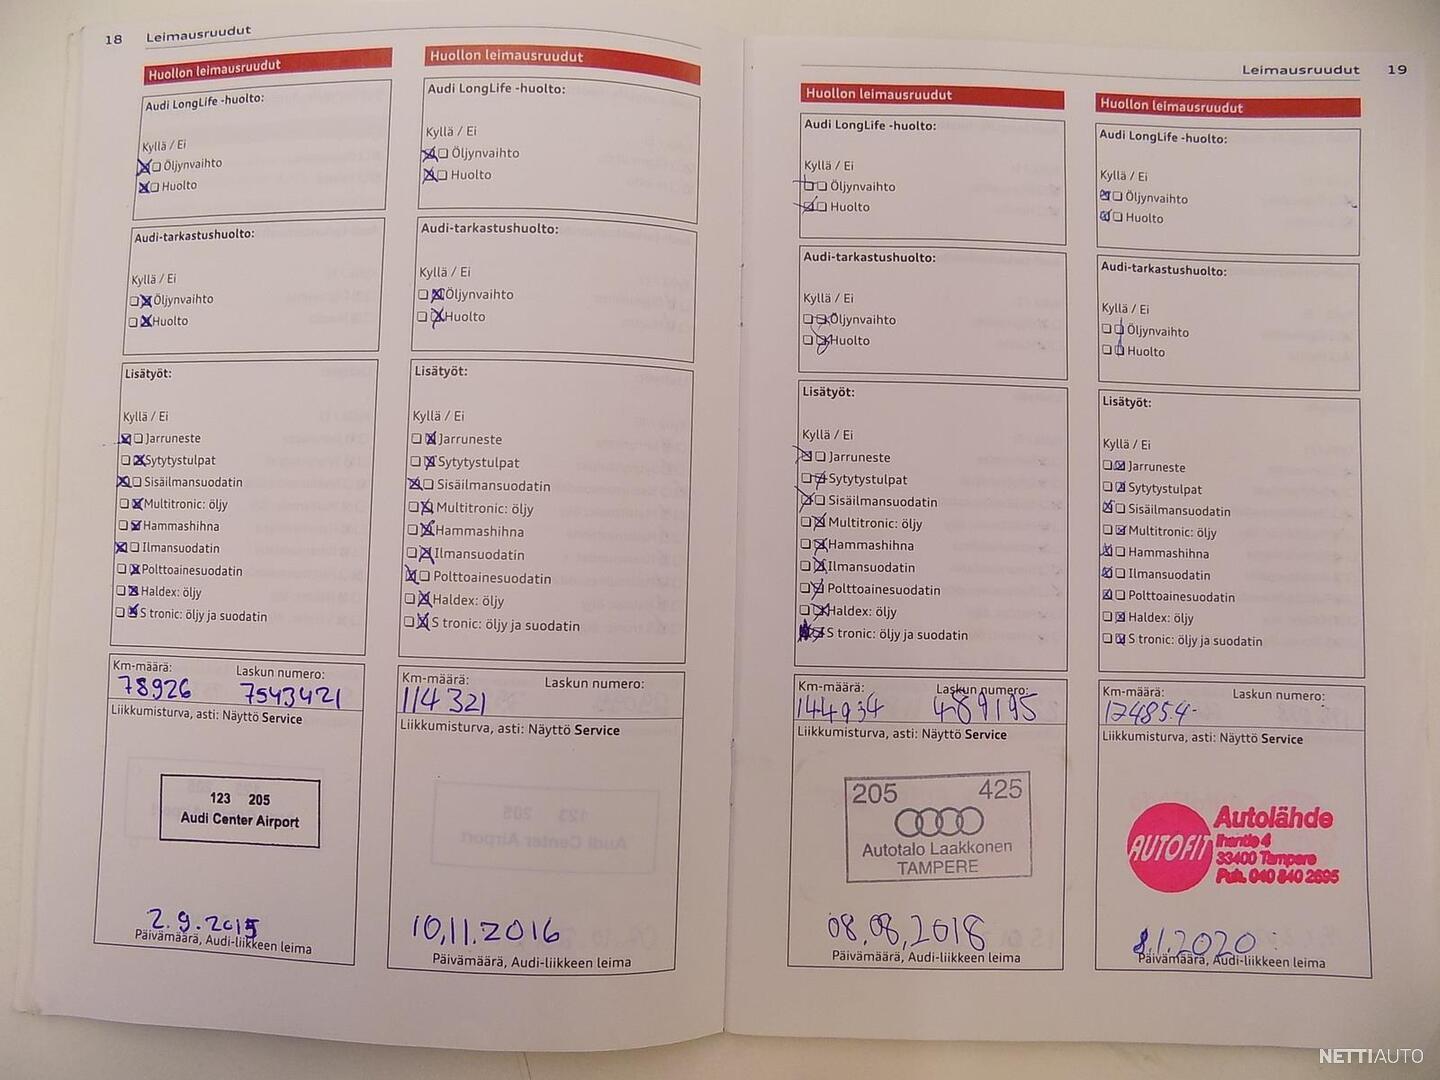 18 Leimausruudut
Huollon leimausruudut
Audi LongLife -huolto:
Kyllä / Ei
Öljynvaihto
Huolto
Audi-tarkastushuolto:
Kyllä / Ei
Öljynvaihto
Huolto
Lisätyöt:
Kyllä / Ei
Jarruneste
Sytytystulpat
Sisäilmansuodatin
Multitronic: öljy
Hammashihna
Ilmansuodatin
Polttoainesuodatin
Haldex: öljy
S tronic: öljy ja suodatin
Km-määrä: Laskun numero:
78926 7543421
Liikkumisturva, asti: Näyttö Service
123 205
Audi Center Airport
2.9.2015
Päivämäärä, Audi-liikkeen leima
Huollon leimausruudut
Audi LongLife -huolto:
Kyllä / Ei
Öljynvaihto
Huolto
Audi-tarkastushuolto:
Kyllä / Ei
Öljynvaihto
Huolto
Lisätyöt:
Kyllä / Ei
Jarruneste
Sytytystulpat
Sisäilmansuodatin
Multitronic: öljy
Hammashihna
Ilmansuodatin
Polttoainesuodatin
Haldex: öljy
S tronic: öljy ja suodatin
Km-määrä: Laskun numero:
114 321
Liikkumisturva, asti: Näyttö Service
10.11.2016
Päivämäärä, Audi-liikkeen leima
Leimausruudut 19
Huollon leimausruudut
Audi LongLife -huolto:
Kyllä / Ei
Öljynvaihto
Huolto
Audi-tarkastushuolto:
Kyllä / Ei
Öljynvaihto
Huolto
Lisätyöt:
Kyllä / Ei
Jarruneste
Sytytystulpat
Sisäilmansuodatin
Multitronic: öljy
Hammashihna
Ilmansuodatin
Polttoainesuodatin
Haldex: öljy
S tronic: öljy ja suodatin
Km-määrä: Laskun numero:
144934 489195
Liikkumisturva, asti: Näyttö Service
205 425
Autotalo Laakkonen
TAMPERE
08.08.2018
Päivämäärä, Audi-liikkeen leima
Huollon leimausruudut
Audi LongLife -huolto:
Kyllä / Ei
Öljynvaihto
Huolto
Audi-tarkastushuolto:
Kyllä / Ei
Öljynvaihto
Huolto
Lisätyöt:
Kyllä / Ei
Jarruneste
Sytytystulpat
Sisäilmansuodatin
Multitronic: öljy
Hammashihna
Ilmansuodatin
Polttoainesuodatin
Haldex: öljy
S tronic: öljy ja suodatin
Km-määrä: Laskun numero:
174854
Liikkumisturva, asti: Näyttö Service
AUTOFIT
Autolähde
33400 Tampere
Puh. 040 840 2695
8.1.2020
Päivämäärä, Audi-liikkeen leima
NETTIAUTO